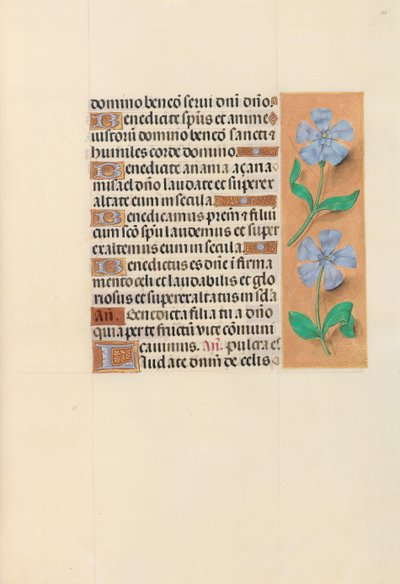 domino benedicō serui dnī dño.
Benedicite spūs et anime
iustorū domino benedcō sancti &
humiles corde domino
Benedicite anania açaria
misael dño laudate et superex
altate eum in secula
Benedicamus prem̄ & filiū
cum scō spū laudemus et super
exaltemus eum in secula
Benedictus es dñe ī firma
mento celi et laudabilis et glo
riosus et superexaltatus in sc̄la
Añ. Benedicta filia tu a dño
quia per te fructū vite cōmuni
cauimus. Añ. pulcra es
Laudate dnm̄ de celis